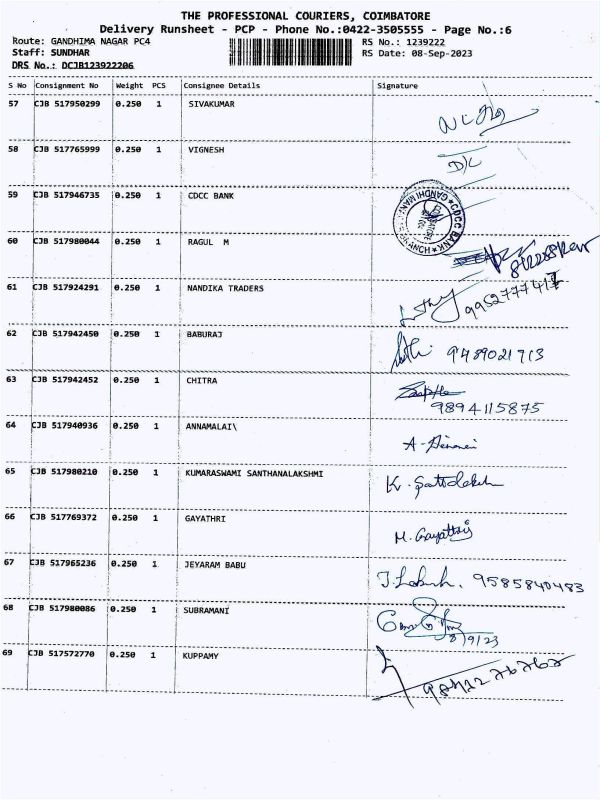 THE PROFESSIONAL COURIERS, COIMBATORE
Delivery Runsheet - PCP - Phone No.:0422-3505555 - Page No.:6
Route: GANDHIMA NAGAR PC4 RS No.: 1239222
Staff: SUNDHAR RS Date: 08-Sep-2023
DRS No.: DCJB123922206
S No Consignment No Weight PCS Consignee Details Signature
57 CJB 517950299 0.250 1 SIVAKUMAR
58 CJB 517765999 0.250 1 VIGNESH
D/L
59 CJB 517946735 0.250 1 CDCC BANK
CDCC BANK
60 CJB 517980044 0.250 1 RAGUL M
61 CJB 517924291 0.250 1 NANDIKA TRADERS
9952777417
62 CJB 517942450 0.250 1 BABURAJ
9489021713
63 CJB 517942452 0.250 1 CHITRA
9894115875
64 CJB 517940936 0.250 1 ANNAMALAI\
65 CJB 517980210 0.250 1 KUMARASWAMI SANTHANALAKSHMI
66 CJB 517769372 0.250 1 GAYATHRI
M. Gayathri
67 CJB 517965236 0.250 1 JEYARAM BABU
9585840483
68 CJB 517980086 0.250 1 SUBRAMANI
8/9/23
69 CJB 517572770 0.250 1 KUPPAMY